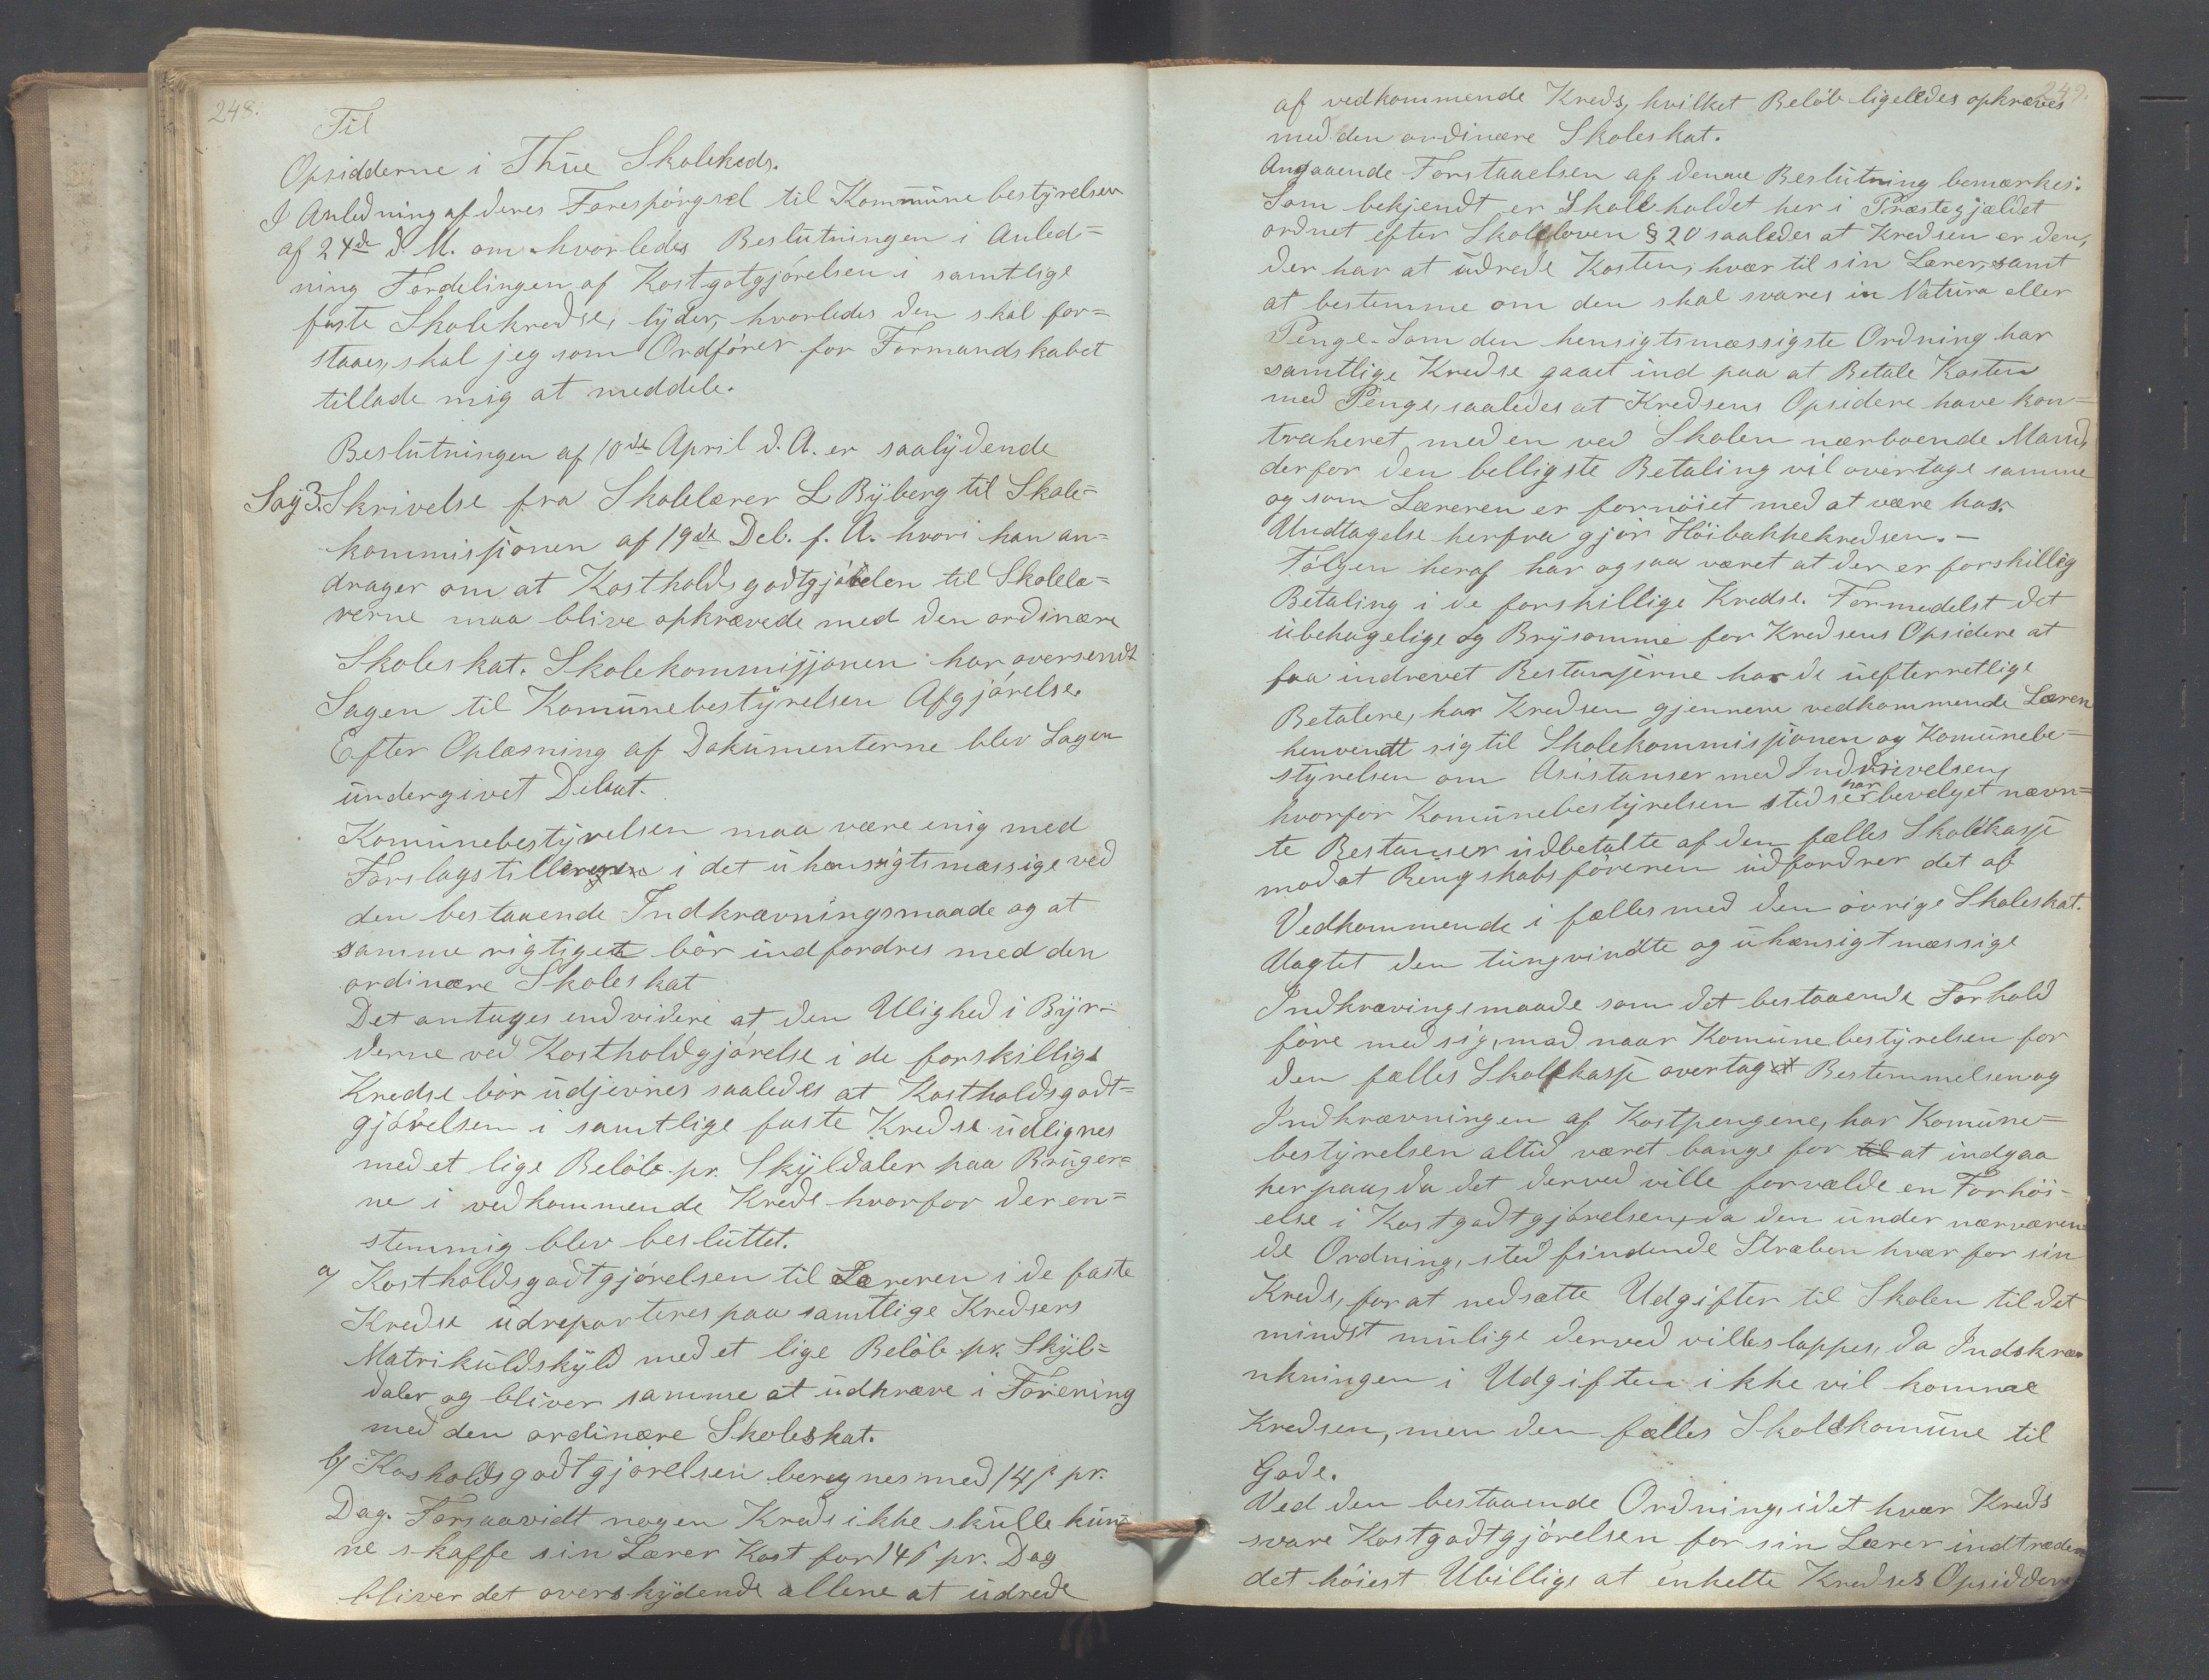 248.
Til
Opsidderne i Thue Skolekeds.
I Anledning af deres Forespørgsel til Kommunebestyrelsen
af 24de d. M. om hvorledes Beslutningen i Anled=
ning Fordelingen af Kostgotgjørelsen i samtlige
faste Skolekredse, lyder, hvorledes den skal for=
staaes, skal jeg som Ordfører for Formandskabet
tillade mig at meddele.
Beslutningen af 10de April d. A. er saalydende
Sag 3. Skrivelse fra Skolelærer L Byberg til Skole=
kommissionen af 19de Deb. f. A. hvori han an=
drager om at Kostholdsgodtgjørlen til Skolelæ=
rerne maa blive opkrævede med den ordinære
Skoleskat. Skolekommissionen har oversendt
Sagen til Komunebestyrelsen Afgjørelse.
Efter Oplæsning af Dokumenterne blev Sagen
undergivet Debat.
Komunebestyrelsen maa være enig med
Forslagstilleren i det uhensigtsmæssige ved
den bestaaende Indkrævningsmaade og at
samme rigtigete bør indfordres med den
ordinære Skoleskat
Det antages endvidere at den Ulighed i Byr=
derne ved Kostholdgjørelse i de forskillige
Kredse bør udjevnes saaledes at Kostholdsgodt=
gjørelsen i samtlige faste Kredse udlignes
med et lige Beløb pr. Skyldaler paa Bruger=
ne i vedkommende Kreds hvorfor der en=
stemmig blev besluttet.
a) Kostholdsgodtgjørelsen til Læreren i de faste
Kredse udreparteres paa samtlige Kredsers
Matrikuldskyld med et lige Beløb pr. Skyl=
daler og bliver samme at udkræve i Forening
med den ordinære Skoleskat.
b) Kosholdsgodtgjørelsen beregnes med 14 ß pr.
Dag. Forsaavidt nogen Kreds ikke skulle kun=
ne skaffe sin Lærer Kost for 14 ß pr. Dag
bliver det overskydende allene at udrede
249.
af vedkommende Kreds, hvilket Beløb ligeledes opkræves
med den ordinære Skoleskat.
Angaaende Forstaaelsen af denne Beslutning bemærkes:
Som bekjendt er Skoleholdet her i Præstegjældet
ordnet efter Skoleloven § 20 saaledes at Kredsen er den,
der har at udrede Kosten, hvær til sin Lærer, samt
at bestemme om den skal svares in Natura eller
Penge. Som den hensigtsmæssigste Ordning har
samtlige Kredse gaaet ind paa at Betale Kosten
med Penge, saaledes at Kredsens Opsidere have kon=
traheret med en ved Skolen nærboende Mand,
der for den belligste Betaling vil overtage samme
og som Læreren er fornøiet med at være hos.
Undtagelse herfra gjør Höibakkekredsen. —
Følgen heraf har ogsaa været at der er forskillig
Betaling i de forskillige Kredse. Formedelst det
ubehagelige og Brysomme for Kredsens Opsidere at
faa indrevet Restanserne hos de uefterretlige
Betalere, har Kredsen gjennem vedkommende Læren
henvendt sig til Skolekommissionen og Komunebe=
styrelsen om Asistanser med Inddrivelsen,
hvorfor Komunebestyrelsen stedse har bevelget nævn=
te Restanser udbetalte af den fælles Skolekasse
mod at Rengskabsføreren udfordrer det af
Vedkommende i fælles med den øvrige Skoleskat.
Uagtet den tungvindte og uhensigtmæssige
Indkrævingsmaade som det bestaaende Forhold
føre med sig, mod naar Komunebestyrelsen for
den fælles Skolekasse overtaget Bestemmelsen og
Indkrævningen af Kostpengene, har Komune=
bestyrelsen altid været bange for til at indgaa
herpaa, da det derved ville forvælde en Forhöi=
else i Kostgodtgjørelsen, da den under nærværen=
de Ordning, stedfindende Stræben hvær for sin
Kreds, for at nedsætte Udgifter til Skolen til det
mindst mulige derved ville slappes, da Indskræn
nkningen i Udgiften ikke vil komme
Kredsen, men den fælles Skolekomune til
Gode.
Ved den bestaaende Ordning, idet hvær Kreds
svare Kostgodtgjørelsen for sin Lærer indtræder
det höiest Ubillige at enkelte Kredses Opsiddere